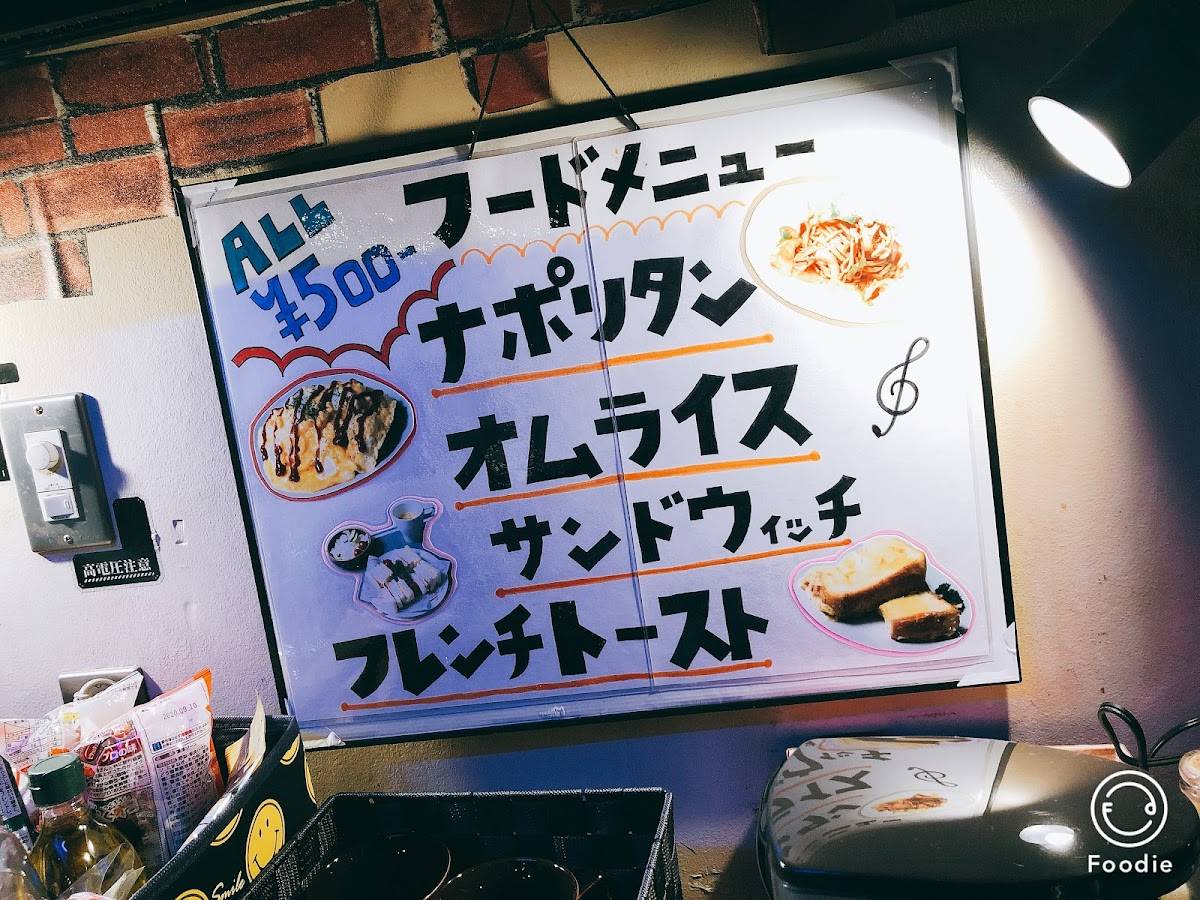 フードメニュー
ALL
¥500-
ナポリタン
オムライス
サンドウィッチ
フレンチトースト
高電圧注意
2020.09.10
プロの味
Smile
Foodie